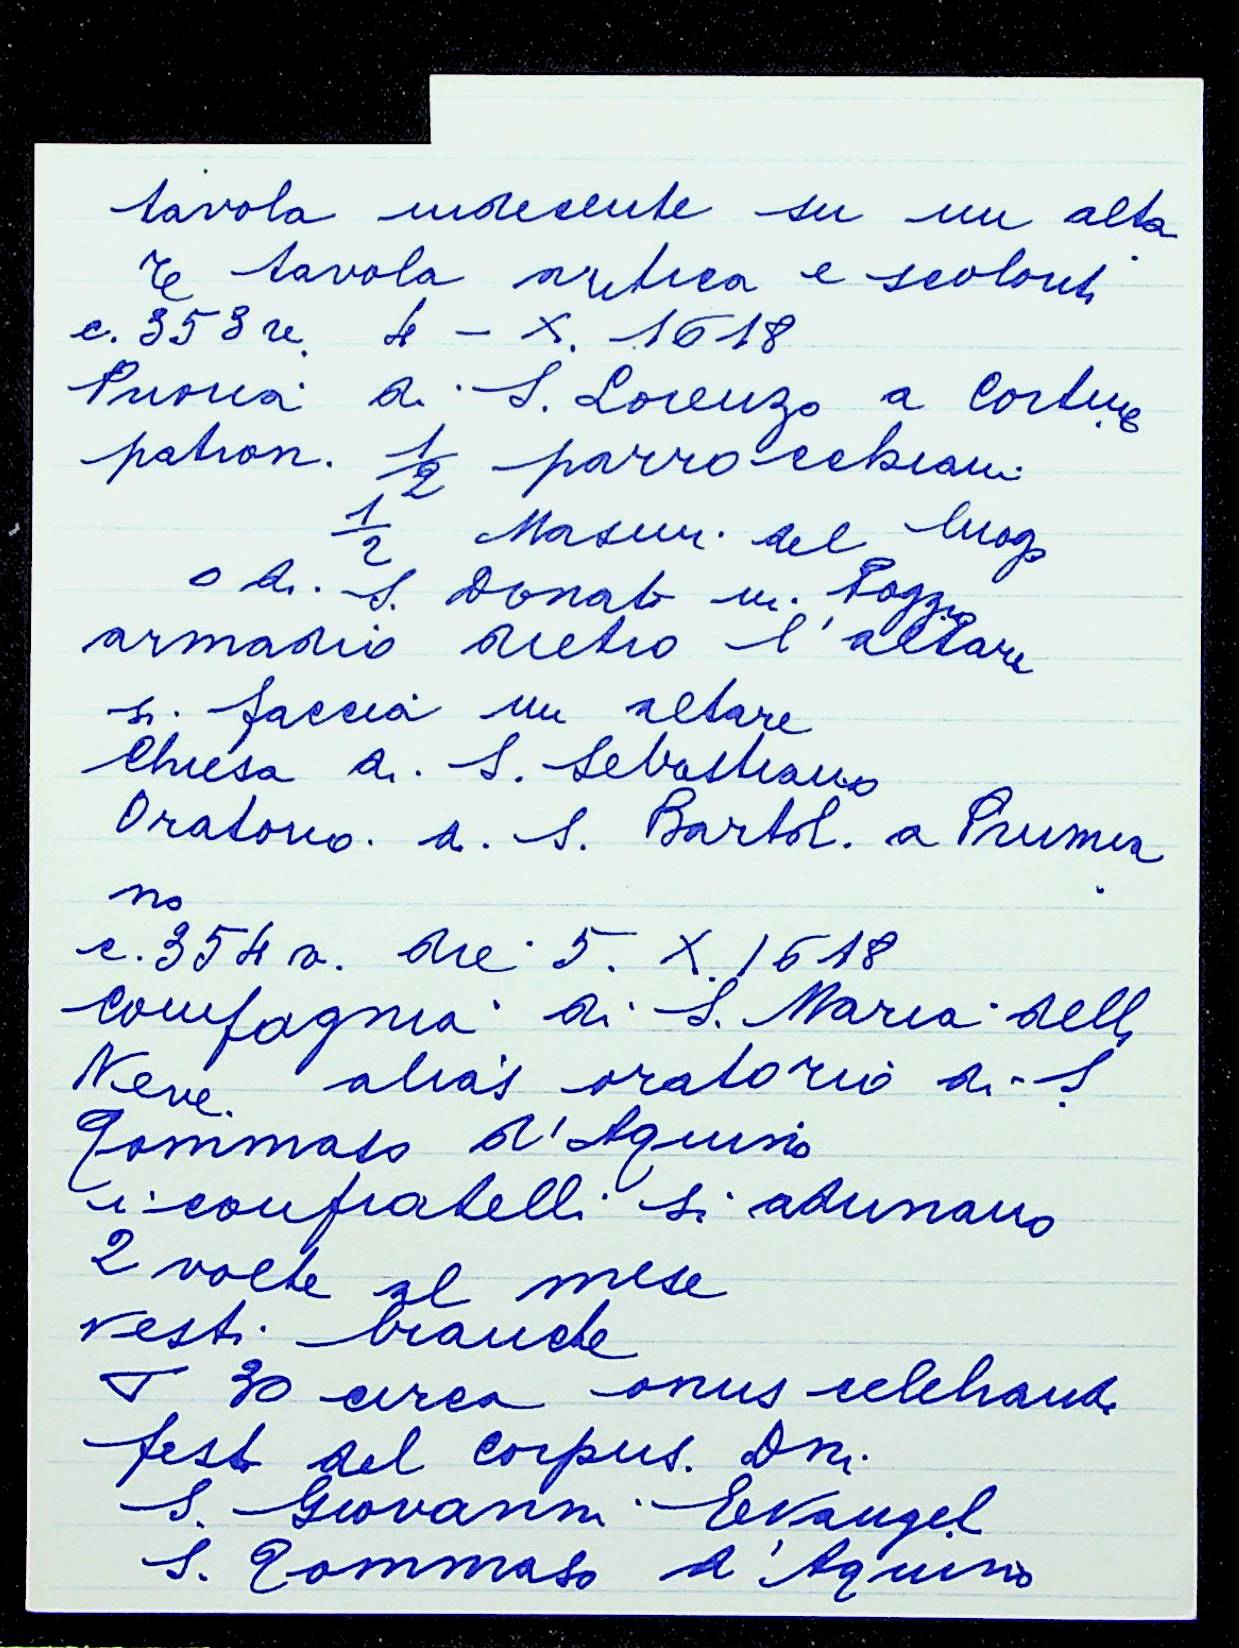 tavola indecente su un alta
re tavola antica e scolorit
c. 353 r. 4 - X. 1618
Prioria di S. Lorenzo a Cortine
patron. 1/2 parrocchiani
1/2 Masur. del luog
o di S. Donato in Poggio
armadio dietro l'altare
si faccia un altare
Chiesa di S. Sebastiano
Oratorio di S. Bartol. a Prumia
no
c. 354 v. die 5. X. 1618
Compagnia di S. Maria della
Neve. alias oratorio di S.
Tommaso d'Aquino
i confratelli si adunano
2 volte al mese
vesti bianche
30 circa onus celebrandi
festo del Corpus. Dni.
S. Giovanni Evangel
S. Tommaso d'Aquino